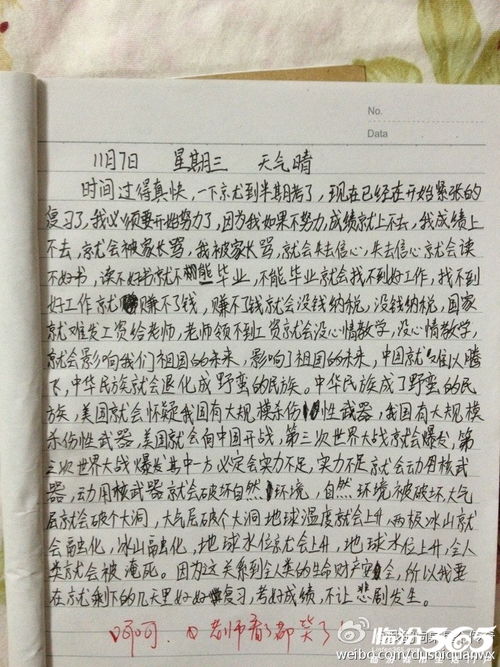 No.
Data
11月7日 星期三 天气晴
时间过得真快,一下就到半期考了,现在已经在开始紧张的
复习了,我必须要开始努力了,因为我如果不努力,成绩就上不去,我成绩上
不去,就会被家长骂,我被家长骂,就会失去信心,失去信心就会读
不好书,读不好书就不能毕业,不能毕业就会找不到好工作,找不到
好工作就赚不了钱,赚不了钱就会没钱纳税,没钱纳税,国家
就难发工资给老师,老师领不到工资就会没心情教学,没心情教学,
就会影响我们祖国的未来,影响了祖国的未来,中国就难以腾
飞,中华民族就会退化成野蛮的民族。中华民族成了野蛮的民
族,美国就会怀疑我国有大规模杀伤性武器,我国有大规模
杀伤性武器,美国就会向中国开战,第三次世界大战就会爆发,第
三次世界大战爆发其中一方必定会实力不足,实力不足就会动用核武
器,动用核武器就会破坏自然环境,自然环境被破坏大气
层就会破个大洞,大气层破个大洞地球温度就会上升,两极冰山就
会融化,冰山融化,地球水位就会上升,地球水位上升,全人
类就会被淹死。因为这关系到全人类的生命财产安全,所以我要
在就剩下的几天里好好复习,考好成绩,不让悲剧发生。
呵呵,老师看了都笑了
临汾365
weibo.com/dushiquanwx